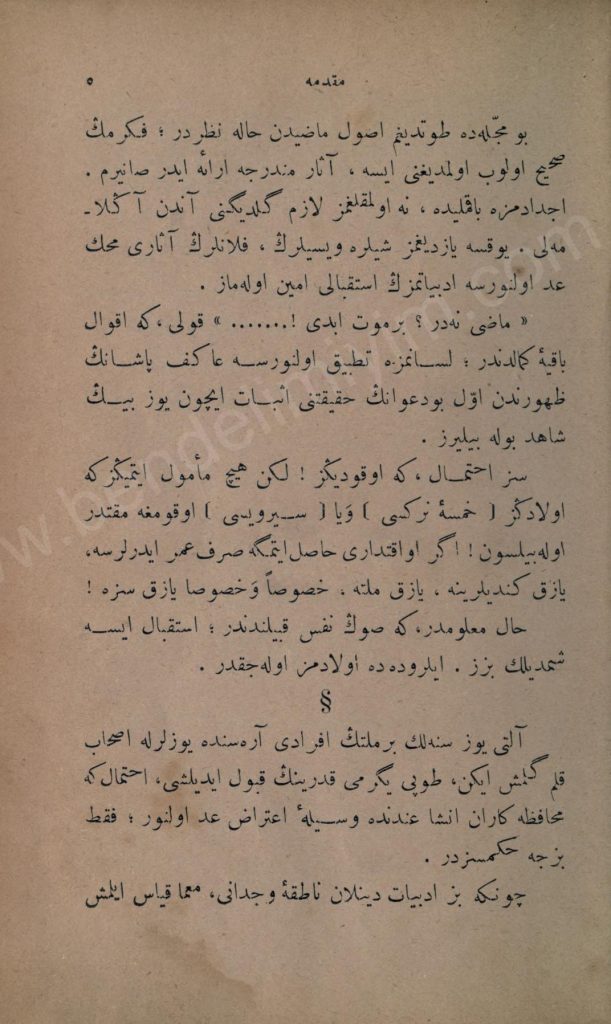 مقدمه ٥
بو مجّله‌ده طوتديغم اصول ماضيدن حاله نظردر ؛ فكرمڭ
صحيح اولوب اولمديغنى ايسه ، آثار مندرجه ارائه ايدر صانيرم .
اجدادمزه باقمليده ، نه اولمقلغمز لازم گلديگنى آندن آڭلا-
مه‌لى . يوقسه يازديغمز شيلره ويسيلرڭ ، فلانلرڭ آثارى محك
عد اولنورسه ادبياتمزڭ استقبالى امين اوله‌ماز .
« ماضى نه‌در ؟ برموت ابدى !....... » قولى ،كه اقوال
باقيۀ كمالدندر ؛ لسانمزه تطبيق اولنورسه عاكف پاشانڭ
ظهورندن اوّل بودعوانڭ حقيقتنى اثبات ايچون يوز بيڭ
شاهد بوله بيليرز .
سز احتمال ،كه اوقوديڭز ! لكن هيچ مأمول ايتميڭزكه
اولادڭز ( خمسۀ نركسى ) وَيا ( سيرويسى ) اوقومغه مقتدر
اوله‌بيلسون ! اگر اواقتدارى حاصل‌ايتمگه صرف عمر ايدرلرسه،
يازق كنديلرينه ، يازق ملته . خصوصاً وَخصوصا يازق سزه !
حال معلومدر،كه صوڭ نفس قبيلندندر ؛ استقبال ايسه
شمديلك بزز . ايلروده‌ده اولادمز اوله‌جقدر .
§
آلتى يوز سنه‌لك برملتڭ افرادى آره‌سنده يوزلرله اصحاب
قلم گلمش ايكن، طوپى يگرمى قدرينڭ قبول ايديلشى، احتمال‌كه
محافظه كاران انشا عندنده وسيلۀ اعتراض عد اولنور ؛ فقط
بزجه حكمسزدر .
چونكه بز ادبيات دينلان ناطقۀ وجدانى، معما قياس ايلمش
www.bendelimiyim.com